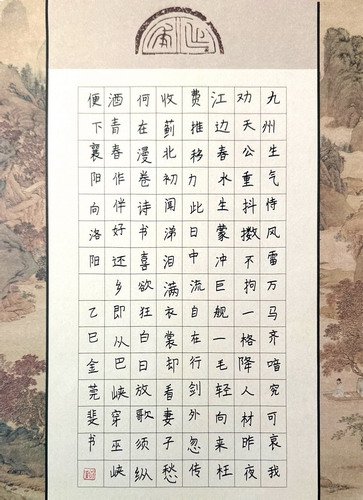 九州生气恃风雷万马齐喑究可哀我
劝天公重抖擞不拘一格降人材昨夜
江边春水生蒙冲巨舰一毛轻向来枉
费推移力此日中流自在行剑外忽传
收蓟北初闻涕泪满衣裳却看妻子愁
何在漫卷诗书喜欲狂白日放歌须纵
酒青春作伴好还乡即从巴峡穿巫峡
便下襄阳向洛阳 乙巳金莞斐书